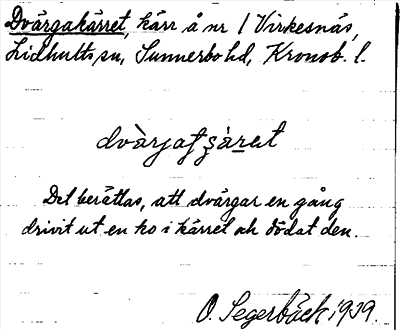 Dvärgakärret, kärr å nr 1 Virkesnäs,
Lidhults sn, Sunnerbo hd, Kronob. l.
Det berättas, att dvärgar en gång
drivit ut en ko i kärret och dödat den.
O. Segerbäck 1939.